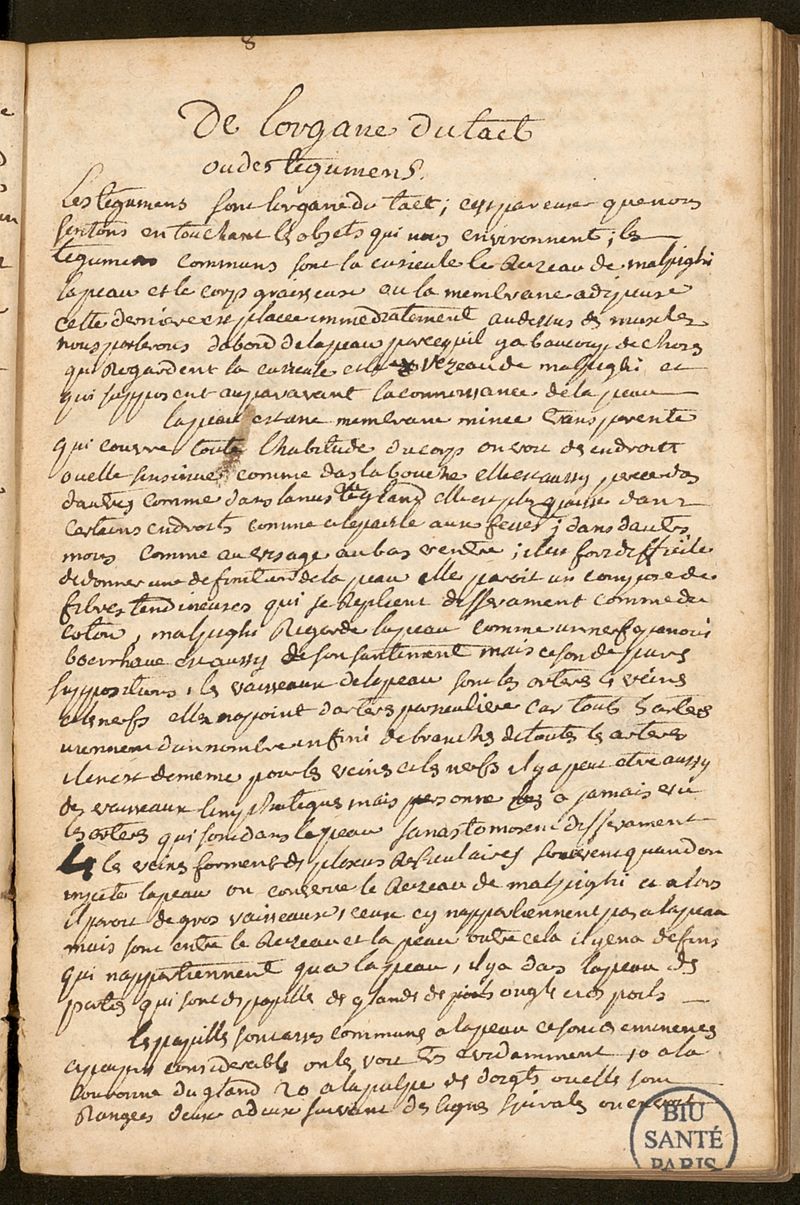 8
De Lorgane du tact
ou des tegumens.
Les tegumens sont lorgane du tact ; cest par eux que nous
sentons en touchant les objets qui nous environnent ; les
tegumens communs sont la cuticule le Rezeau de malpighi
la peau et le corps graisseux ou la membrane adypeuse
cette derniere est placee immediatement au dessus des muscles
nous parlerons dabord de la peau parcequil y a baucoup de choses
qui Regardent la cuticule et le Rezeau de malpighi et
qui supposent auparavant la connoissance de la peau
la peau est une membrane mince transparente
qui couvre toute lhabitude du corps on voit des endroits
ou elle sinsinue comme das la bouche elle est aussy percee das
dautres comme dans lanus le gland elle est plus epaisse dans
certains endroits comme a lepaule aux fesses ; dans dautres
moins comme au visage au bas ventre ; il est fort difficile
de donner une definition de la peau elle paroit un compose de
fibres tendineuses qui se Replient differament comme du
coton, malpighi Regarde la peau comme un nerf epanoui
boerrhaave est aussy de son santiment mais ce son de pures
suppositions, les vaisseaux de la peau sont les arteres les veines
et les nerfs elle na point darteres particuliere car touts les arteres
viennent dun nombre infini de branches de toutes les arteres
il en est de meme pour les veines et les nerfs il y a peut etre aussy
des vaisseaux limphatiques mais personne les a jamais veu
les arteres qui sont dans la peau sanastomosent differament
les veines forment des plexus Reticulaires souvent quand on
injecte la peau on conserve le Rezeau de malpighi et alors
il paroit de gros vaisseaux, ceux cy nappartiennent pas a la peau
mais sont entre le Rezeau et la peau outre cela il y en a de fins
qui nappartiennent qua la peau, il y a das la peau des
parties qui sont des papilles des glandes des ongles et des poils
les papilles sont assez communs a la peau ce sont des eminences
un peu considerables on les voit tres evidamment 1o a la
couronne du gland 2o a la pulpe des doigts ou elle sont
Rangees deux a deux suivant des lignes spirales on en voit
BIU
SANTÉ
PARIS